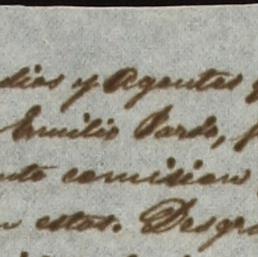 dios y Agentes
Emilio Pardo,
comision
estos. Desgra